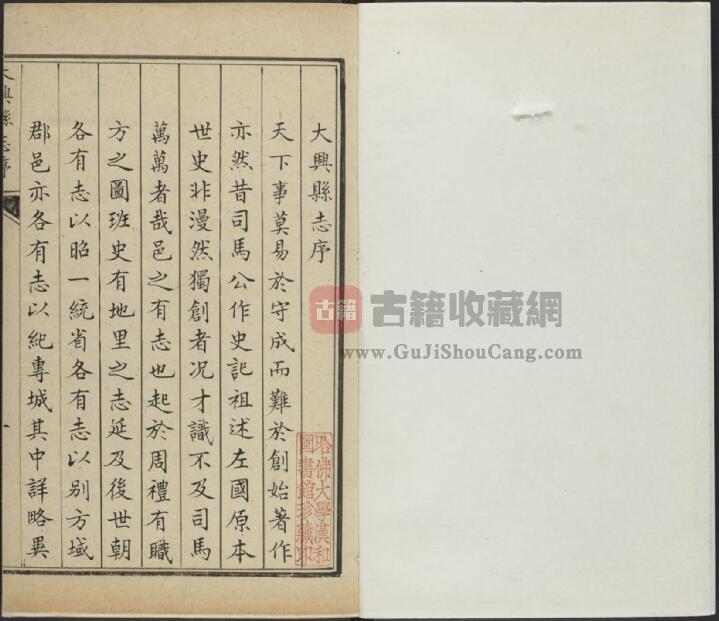 大興縣志序
天下事莫易於守成而難於創始著作
亦然昔司馬公作史記祖述左國原本
世史非漫然獨創者况才識不及司馬
萬萬者哉邑之有志也起於周禮有職
方之圖班史有地里之志延及後世朝
各有志以昭一統省各有志以别方域
郡邑亦各有志以紀專城其中詳略異
大興縣志序
一
哈佛大學漢和
圖書館珍藏印
古籍
古籍收藏網
www.GuJiShouCang.com